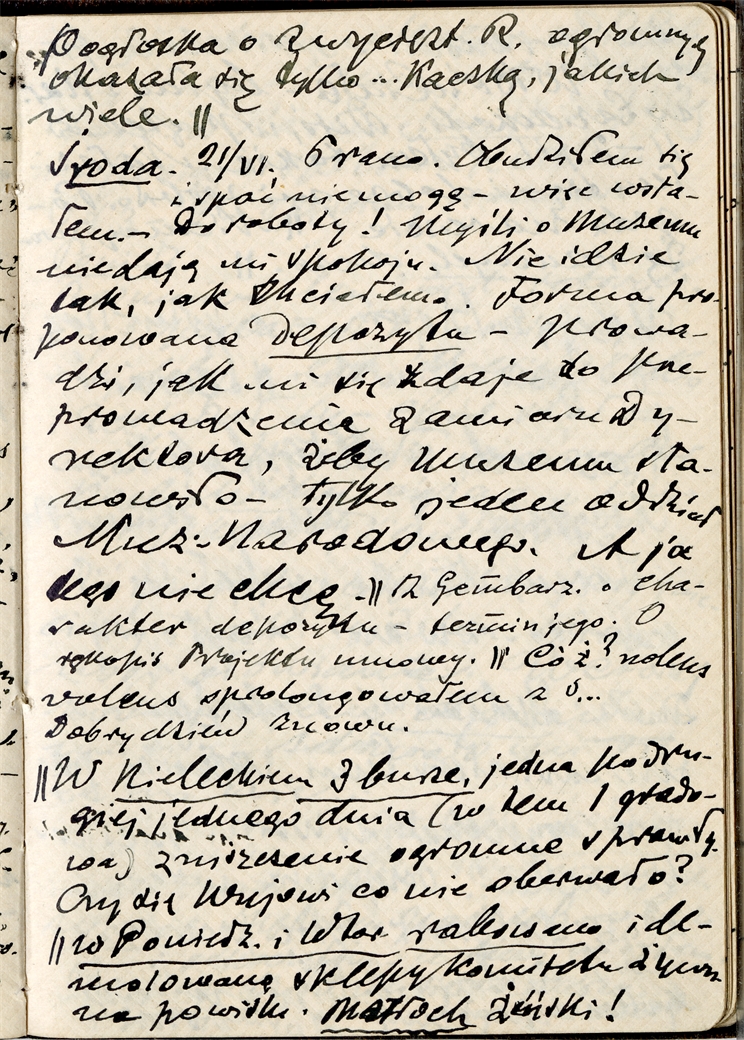 Pogłoska o zwycięzt. R. ogromnych
okazała się tylko... Kaczką, jakich
wiele. ||
Środa. 21/VI. 6 rano. Obudziłem się
i spać nie mogę – więc wsta-
łem. – Do roboty! Myśli o Muzeum
nie dają mi spokoju. Nie idzie
tak, jak chciałem. Forma pro-
ponowana depozytu – prowa-
dzi, jak mi się zdaje do prze-
prowadzenia zamiaru Dy-
rektora, żeby muzeum sta-
nowiło – tylko jeden oddział
Muz. Narodowego. A ja
tego nie chcę. || Z Gembarz. o cha-
rakter depozytu – termin jego. O
rękopis Projektu umowy. || Cóż? nolens
volens sprolongowałem z
Dobry dzień znowu.
|| W Kieleckiem 3 burze, jedna po dru-
giej jednego dnia (w tem 1 grado-
wa) zniszczenie ogromne sprawiły.
Czy się Wujowi co nie oberwało?
|| w Poniedz. i Wtor rabowano i de-
molowano sklepy komitetu żywn.
na powiślu. Motłoch żeński!